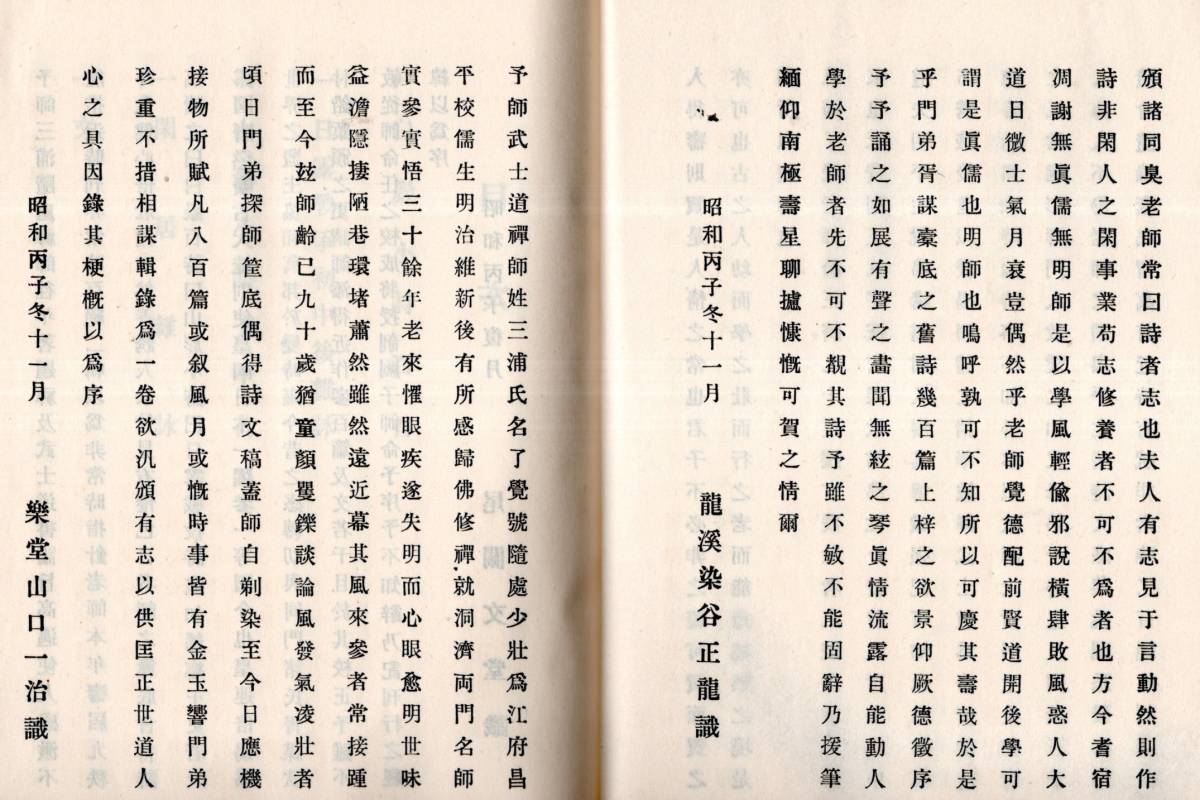 頒諸同臭老師常曰詩者志也夫人有志見于言動然則作
詩非閑人之閑事業苟志修養者不可不爲者也方今耆宿
凋謝無眞儒無明師是以學風輕偸邪說横肆敗風惑人大
道日微士氣月衰豈偶然乎老師覺德配前賢道開後學可
謂是眞儒也明師也嗚呼孰可不知所以可慶其壽哉於是
乎門弟胥謀槖底之舊詩幾百篇上梓之欲景仰厥德徵序
予予誦之如展有聲之畫聞無絃之琴眞情流露自能動人
學於老師者先不可不覩其詩予雖不敏不能固辭乃援筆
緬仰南極壽星聊攄慷慨可賀之情爾
昭和丙子冬十一月
龍溪染谷正龍識
予師武士道禪師姓三浦氏名了覺號隨處少壯爲江府昌
平校儒生明治維新後有所感歸佛修禪就洞濟両門名師
實參實悟三十餘年老來懼眼疾遂失明而心眼愈明世味
益澹隱捿陋巷環堵蕭然雖然遠近慕其風來參者常接踵
而至今玆師齡已九十歲猶童顏矍鑠談論風發氣凌壯者
頃日門弟探師筐底偶得詩文稿蓋師自剃染至今日應機
接物所賦凡八百篇或叙風月或慨時事皆有金玉響門弟
珍重不措相謀輯錄爲一卷欲汎頒有志以供匡正世道人
心之具因錄其梗概以爲序
昭和丙子冬十一月
樂堂山口一治識